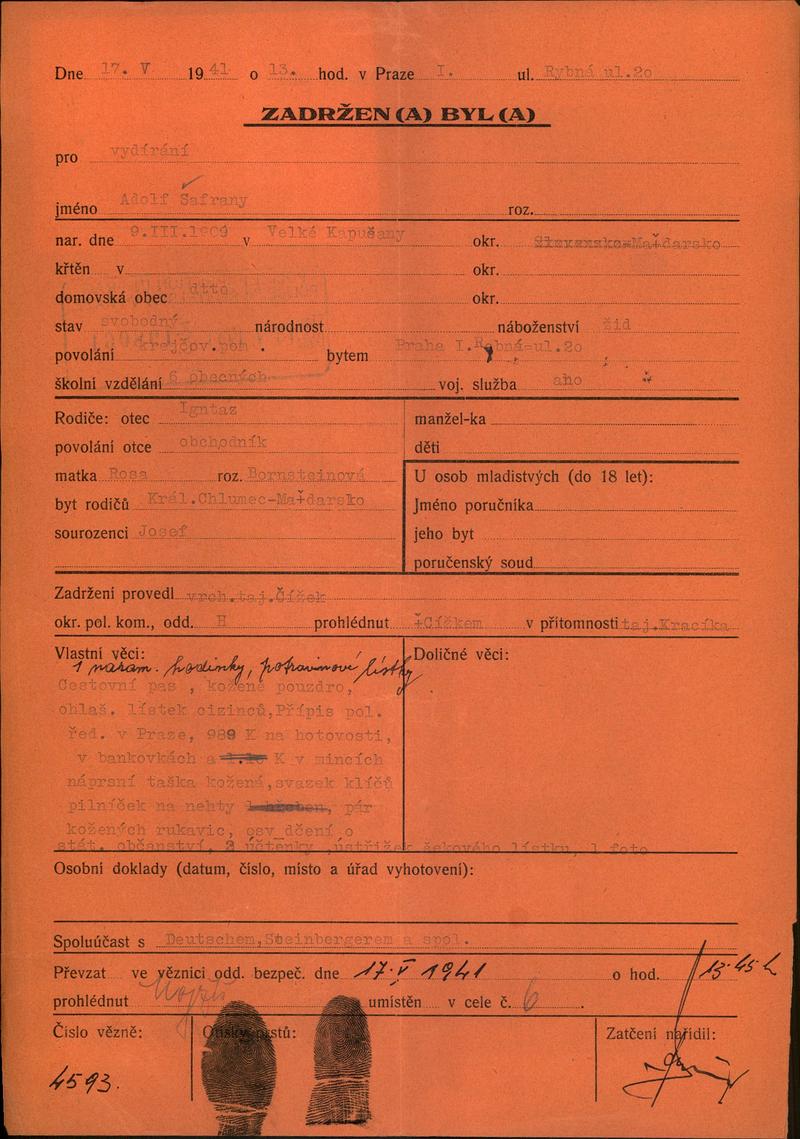 Dne 17. V 19 41 o 13. hod. v Praze I. ul. Rybná ul.2o
ZADRŽEN (A) BYL (A)
pro vydírání
jméno Adolf Safrany roz.
nar. dne 9.III.1909 v Velké Kapušany okr. Slovensko-Maďarsko
křtěn v okr.
domovská obec dtto okr.
stav svobodný národnost náboženství žid
povolání krejčov.pom. bytem Praha I.Rybná-ul.2o
školní vzdělání 6 obecných voj. služba ano
Rodiče: otec Igntaz manžel-ka
povolání otce obchodník děti
matka Rosa roz. Bornsteinová U osob mladistvých (do 18 let):
byt rodičů Král.Chlumec-Maďarsko Jméno poručníka
sourozenci Josef jeho byt
poručenský soud
Zadržení provedl vrch.taj.Čížek
okr. pol. kom., odd. H prohlédnut Čížkem v přítomnosti taj.Kracíka
Vlastní věci: Doličné věci:
1 náram. hodinky, potravinové lístky
Cestovní pas , kožené pouzdro,
ohlaš. lístek cizinců,Přípis pol.
řed. v Praze, 989 K na hotovosti,
v bankovkách a K v mincích
náprsní taška kožená,svazek klíčů
pilníček na nehty 1 hřeben, pár
kožených rukavic, osv dčení o
stát. občanství, 2 účtenky ,ústřižek šekového lístku, 1 foto
Osobní doklady (datum, číslo, místo a úřad vyhotovení):
Spoluúčast s Deutschem,Steinbergerem a spol.
Převzat ve věznici odd. bezpeč. dne 17. V 1941 o hod. 13.45 h
prohlédnut umístěn v cele č. 6
Číslo vězně: Otisky prstů: Zatčení nařídil:
4593.